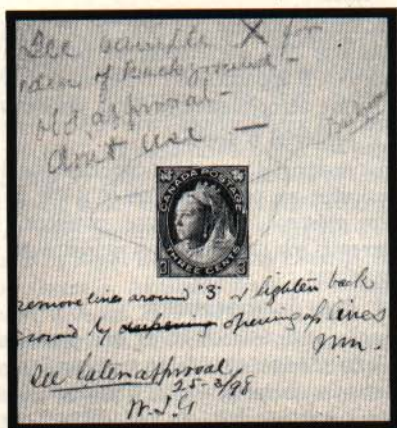 See sample X for
idea of Background -
old approval -
don't use -
CANADA POSTAGE
3 THREE CENTS 3
remove lines around "3" & lighten back
ground by deepening opening of lines
mm.
See later approval
25-3/98
W.J.G